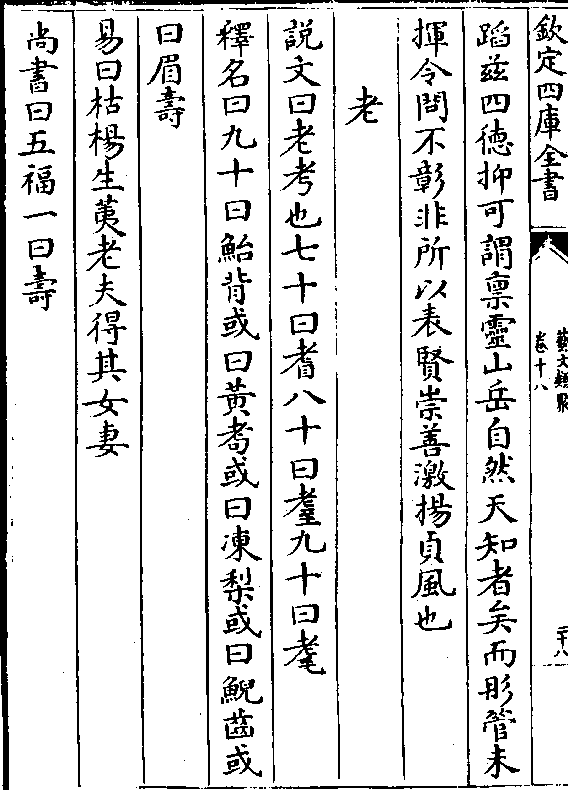 欽定四庫全書
藝文類聚
卷十八
二十八
蹈兹四德抑可謂禀靈山岳自然天知者矣而彤管未
揮令問不彰非所以表賢崇善激揚貞風也
老
説文曰老考也七十曰耆八十曰耋九十曰耄
釋名曰九十曰鮐背或曰黄耇或曰凍梨或曰鯢齒或
曰眉壽
易曰枯楊生荑老夫得其女妻
尚書曰五福一曰壽